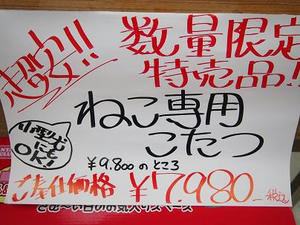 超安!!
数量限定
特売品!!
ねこ専用
こたつ
小型犬
にも
OK!
¥9.800のところ
ご奉仕価格 ¥7,980-税込